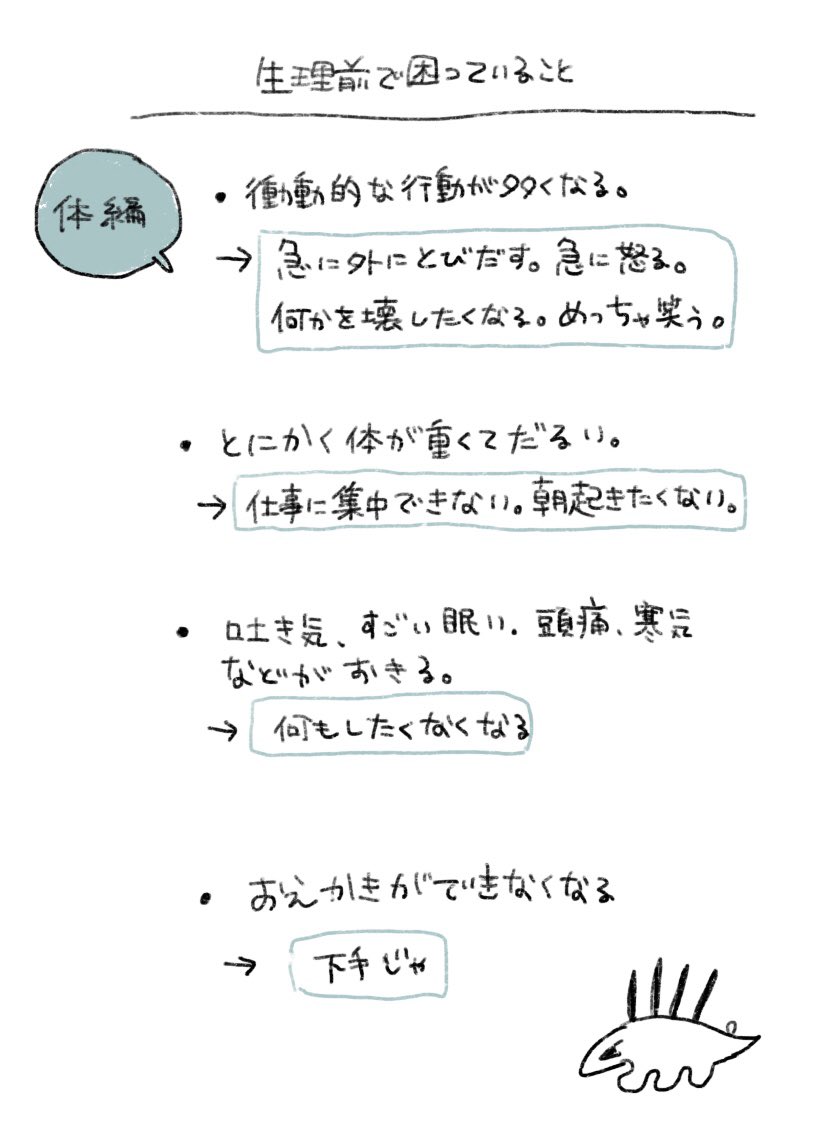 生理前で困っていること
体編
・衝動的な行動が多くなる。
→ 急に外にとびだす。急に怒る。
何かを壊したくなる。めっちゃ笑う。
・とにかく体が重くてだるい。
→ 仕事に集中できない。朝起きたくない。
・吐き気、すごい眠い、頭痛、寒気
などがおきる。
→ 何もしたくなくなる
・おえかきができなくなる
→ 下手じゃ